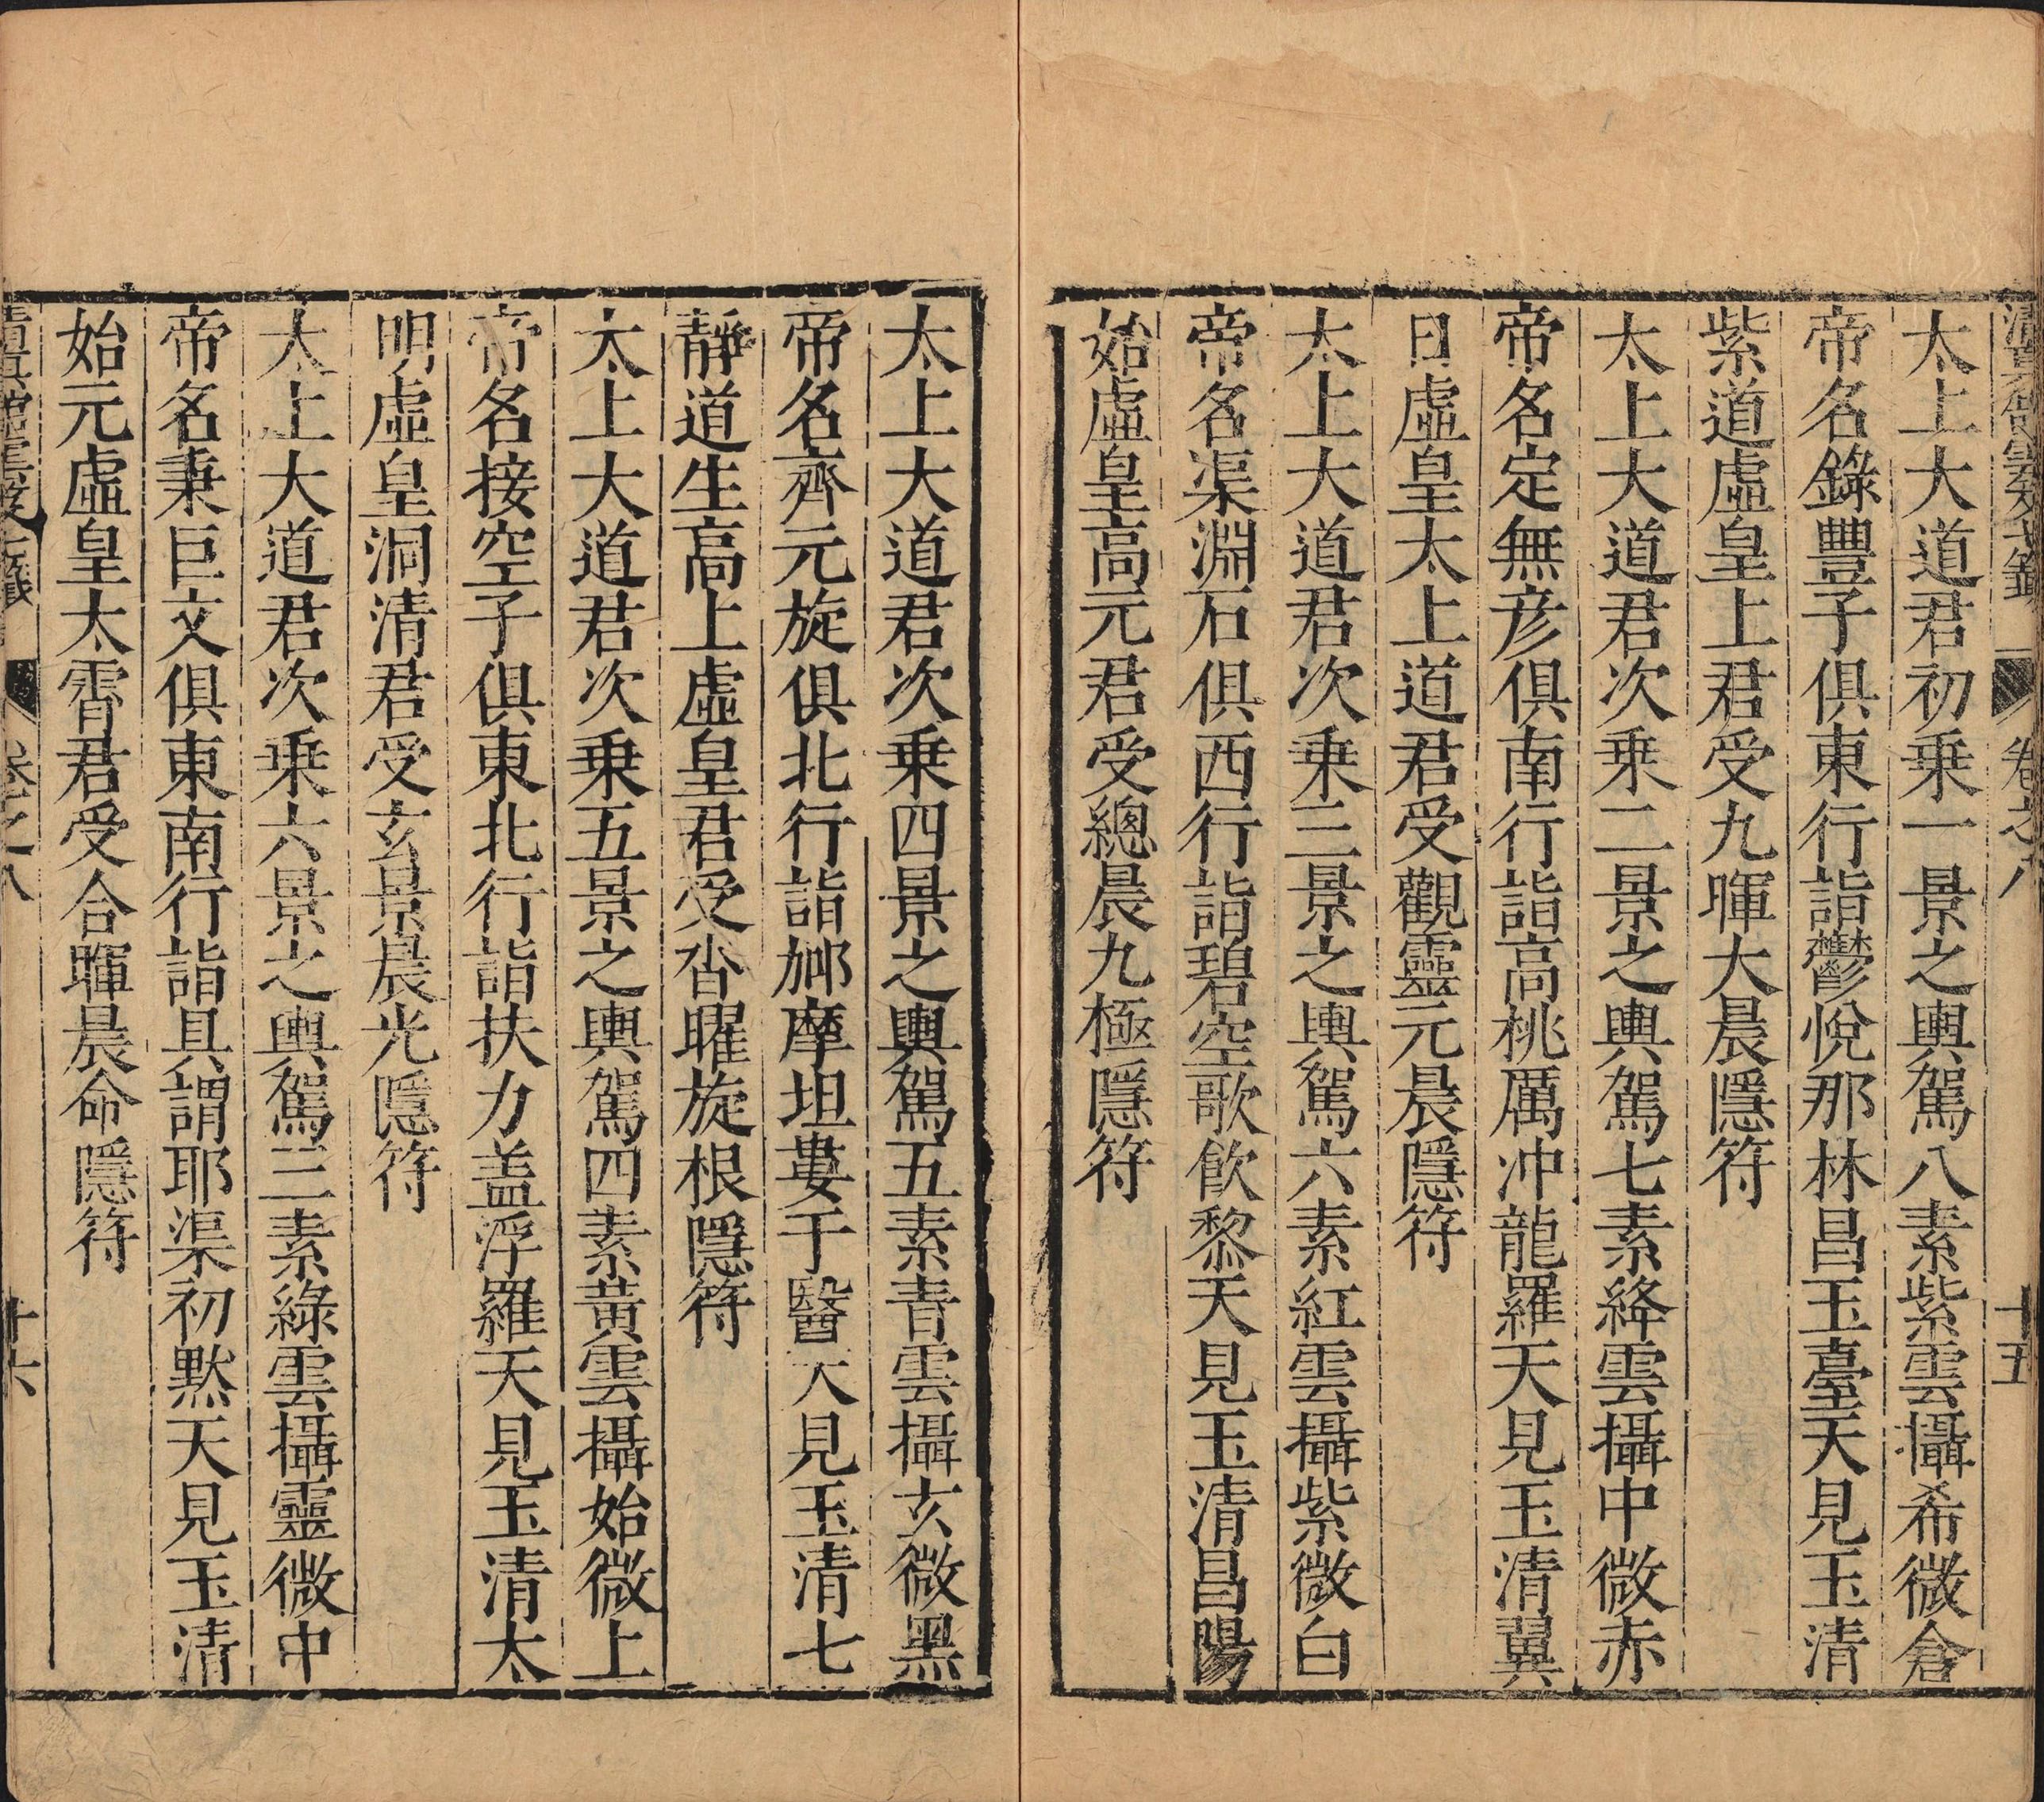 太上大道君初乗一景之輿駕八素紫雲攝希微倉
帝名錄豐子俱東行詣鬱悅那林昌玉臺天見玉清
紫道虛皇上君受九暉大晨隱符
太上大道君次乗二景之輿駕七素絳雲攝中微赤
帝名定無彦俱南行詣高桃厲冲龍羅天見玉清翼
日虛皇太上道君受觀靈元晨隱符
太上大道君次乗三景之輿駕六素紅雲攝紫微白
帝名渠淵石俱西行詣碧空歌飲黎天見玉清昌陽
始虛皇高元君受總晨九極隱符
卷之八
十五
太上大道君次乗四景之輿駕五素青雲攝玄微黑
帝名齊元旋俱北行詣摩坦婁于醫天見玉清七
靜道生高上虛皇君受沓曜旋根隱符
太上大道君次乗五景之輿駕四素黃雲攝始微上
帝名接空子俱東北行詣扶力盖浮羅天見玉清太
明虛皇洞清君受玄景晨光隱符
太上大道君次乗六景之輿駕三素綠雲攝靈微中
帝名秉巨文俱東南行詣具謂耶渠初默天見玉清
始元虛皇太霄君受合暉晨命隱符
卷之八
十六